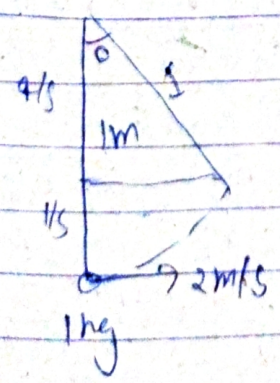 θ
4/5
1
1m
1/5
2m/s
1kg